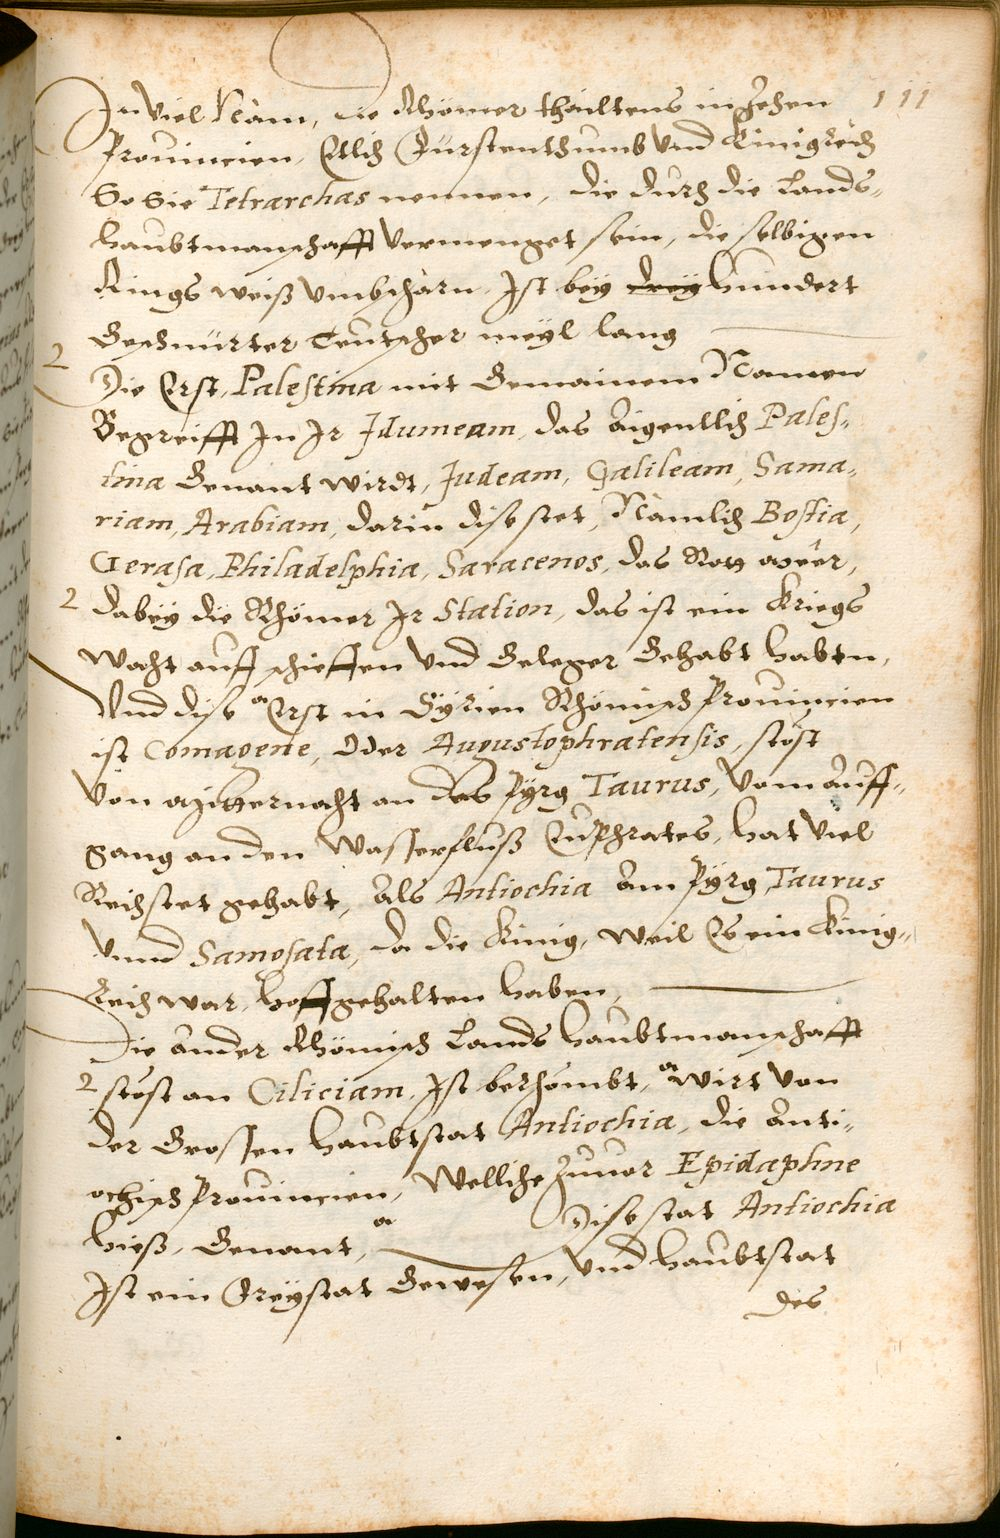 111
In viel Näm, die Rhömer thailtens in Zehen
Prouincien, Etlich Fürstenthumb vnd Künigreich
So Sie Tetrarchas nennen, die durch die Lands-
haubtmanschafft vermenget sein, die selbigen
Rings weiß vmbscharn. Ist bey drey hundert
Geschnürter Teutscher meyl lang
2
Die Erst, Palestina mit Gemainem Namen
Begreifft In Ir Idumeam, das Aigentlich Pales-
tina Genant wirdt, Judeam, Galileam, Sama-
riam, Arabiam, darin dise stet, Nämlich Bostia,
Gerasa, Philadelphia, Saracenos, das Rott mêer,
2 dabey die Rhömer Ir Station, das ist ein Kriegs
wacht auff schieffen vnd Geleger Gehabt haben,
Vnd dise Erst in Syrien Rhömisch Prouincien
ist Comagene, Oder Augustophratensis, stöst
von mitternacht an das Pyrg Taurus, Vom Auff-
gang an den Wasserfluß Euphrates, hat viel
Reichstet gehabt, Als Antiochia Am Pyrg Taurus
Vnnd Samosata, da die Künig, weil Es ein Künig-
Reich war, Hoff gehalten haben,
Die Ander Rhömisch Lands Haubtmanschafft
2 stöst an Ciliciam, Ist berhömbt, wirt von
der Grossen Haubtstat Antiochia, die Anti-
ochisch Prouincien, Welliche Zuuor Epidaphne
hieß, Genant, Dise stat Antiochia
Ist ein Freystat Gewesen, vnd Haubtstat
des